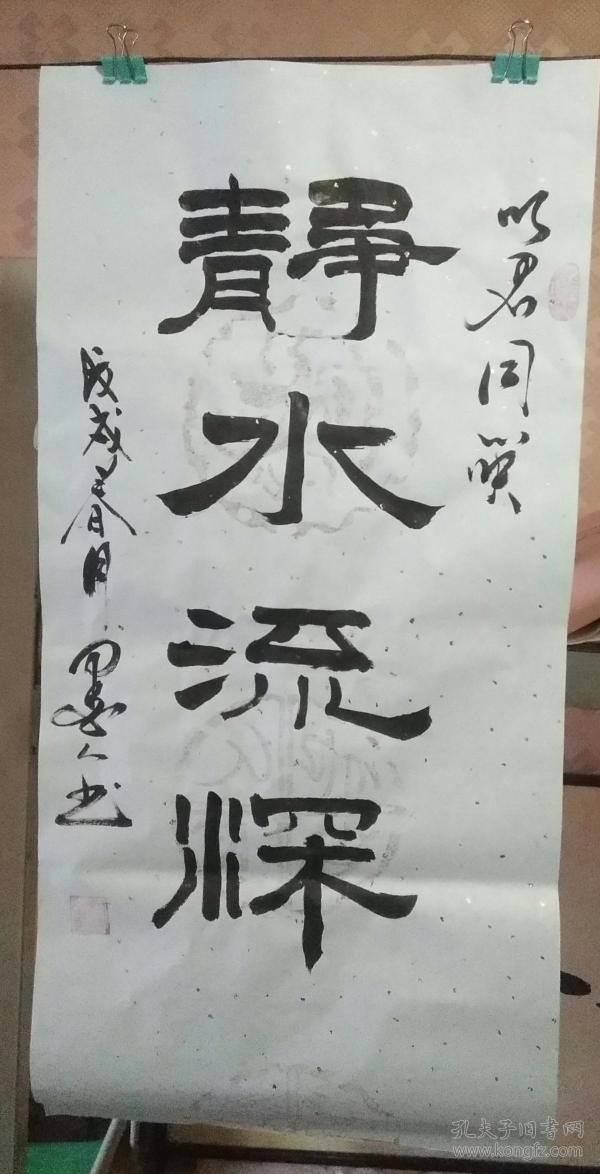 以君同赏
靜水流深
戊戌春月 墨人书
孔夫子旧书网
www.kongfz.com